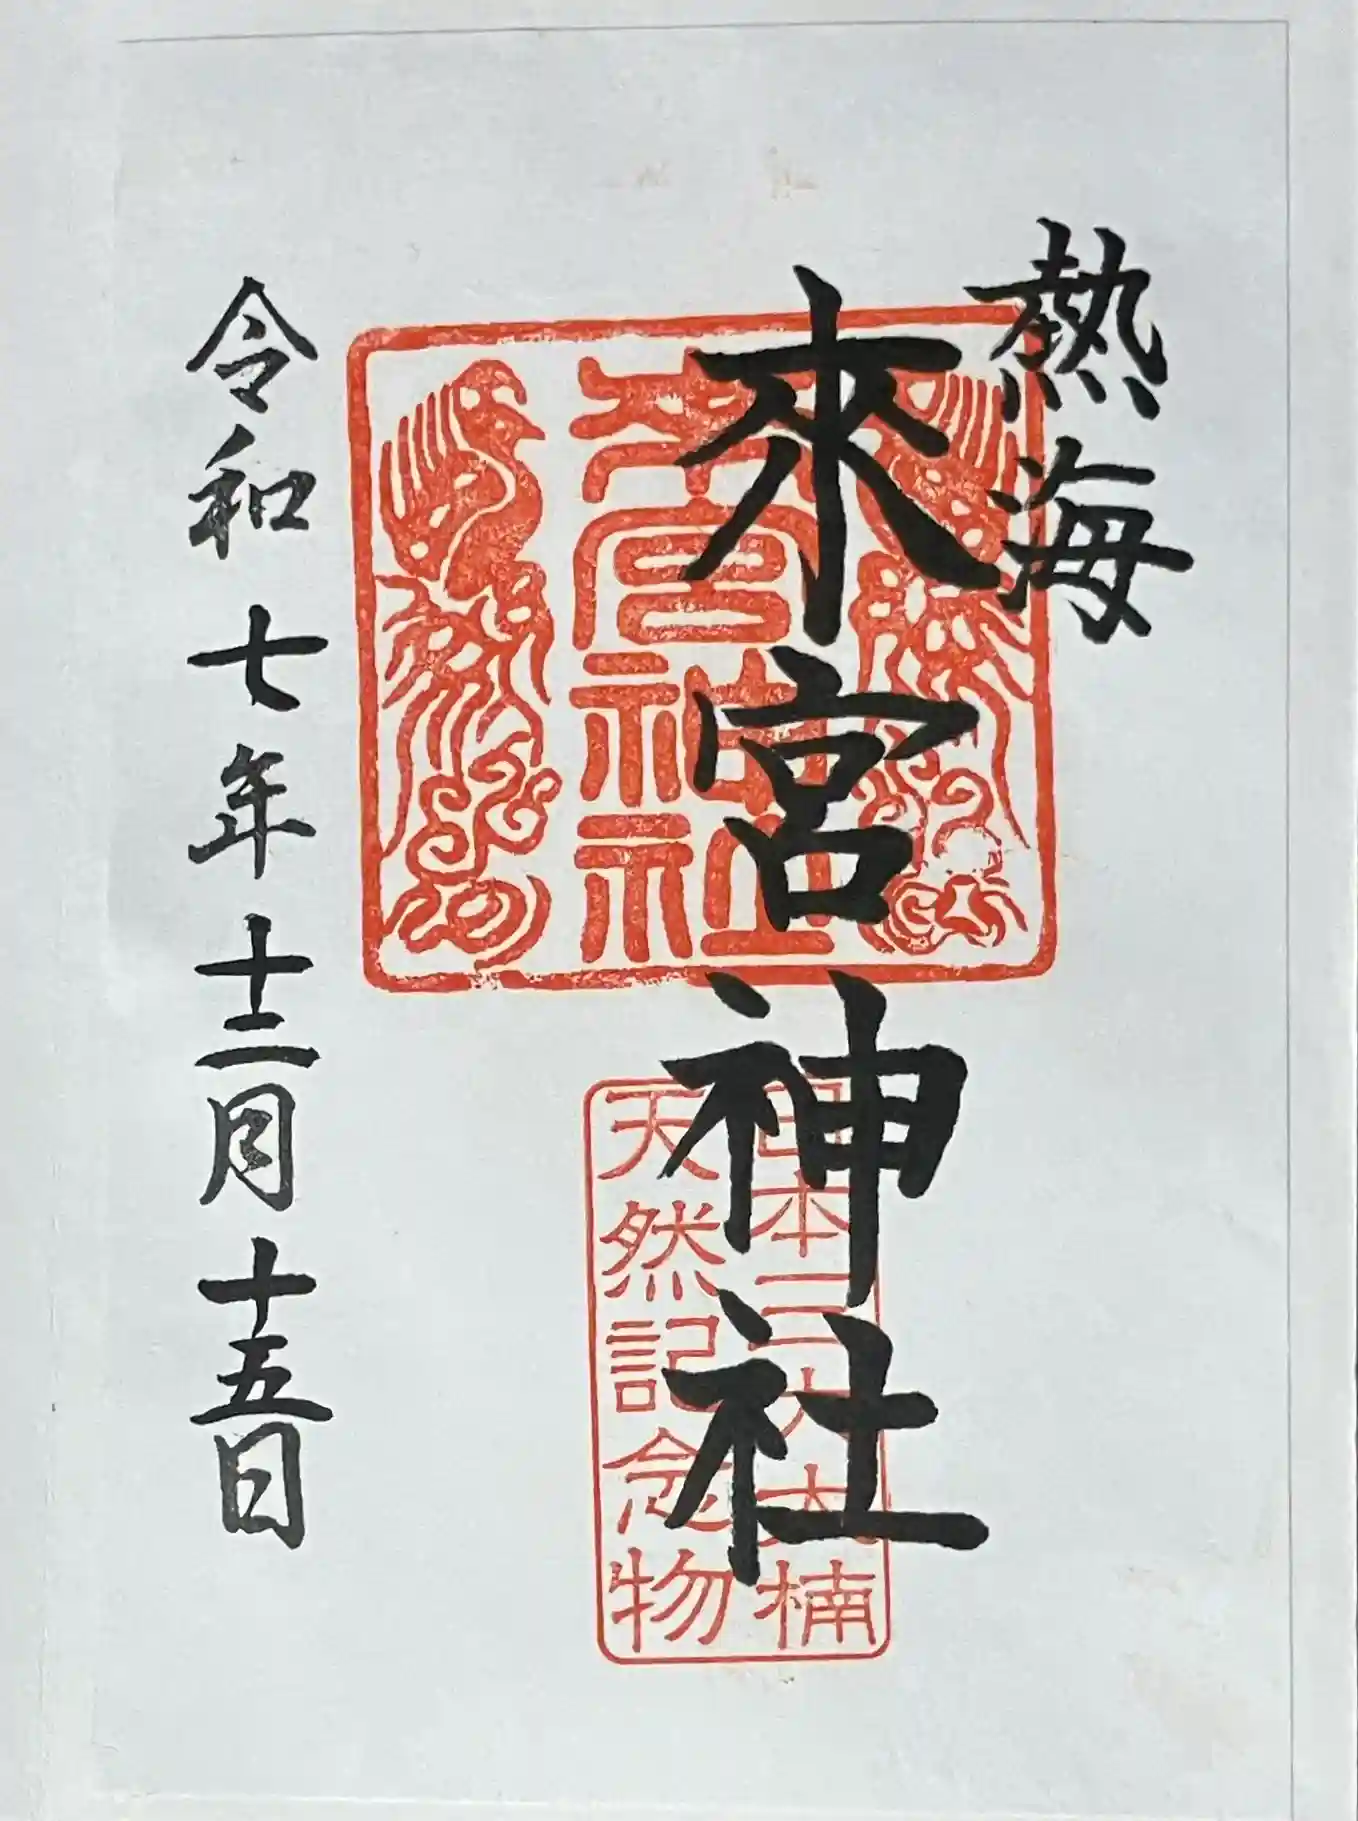 熱海
來宮神社
來宮神社
日本三大大楠
天然記念物
令和七年十二月十五日